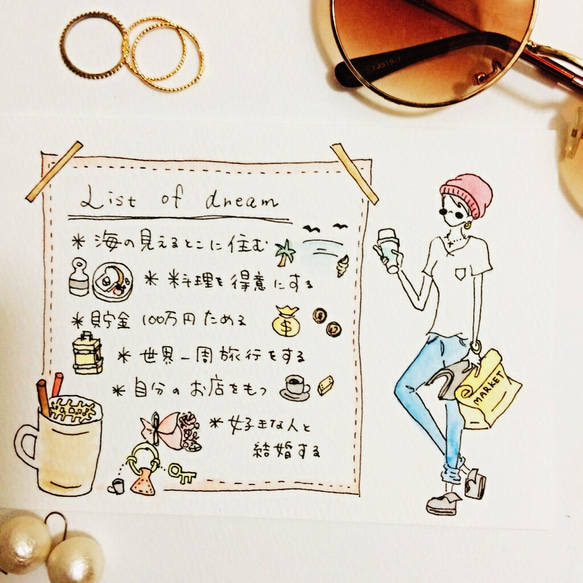 List of dream
* 海の見えるとこに住む
* 料理を得意にする
* 貯金 100万円ためる
* 世界一周旅行をする
* 自分のお店をもつ
* 好きな人と
結婚する
@ MARKET